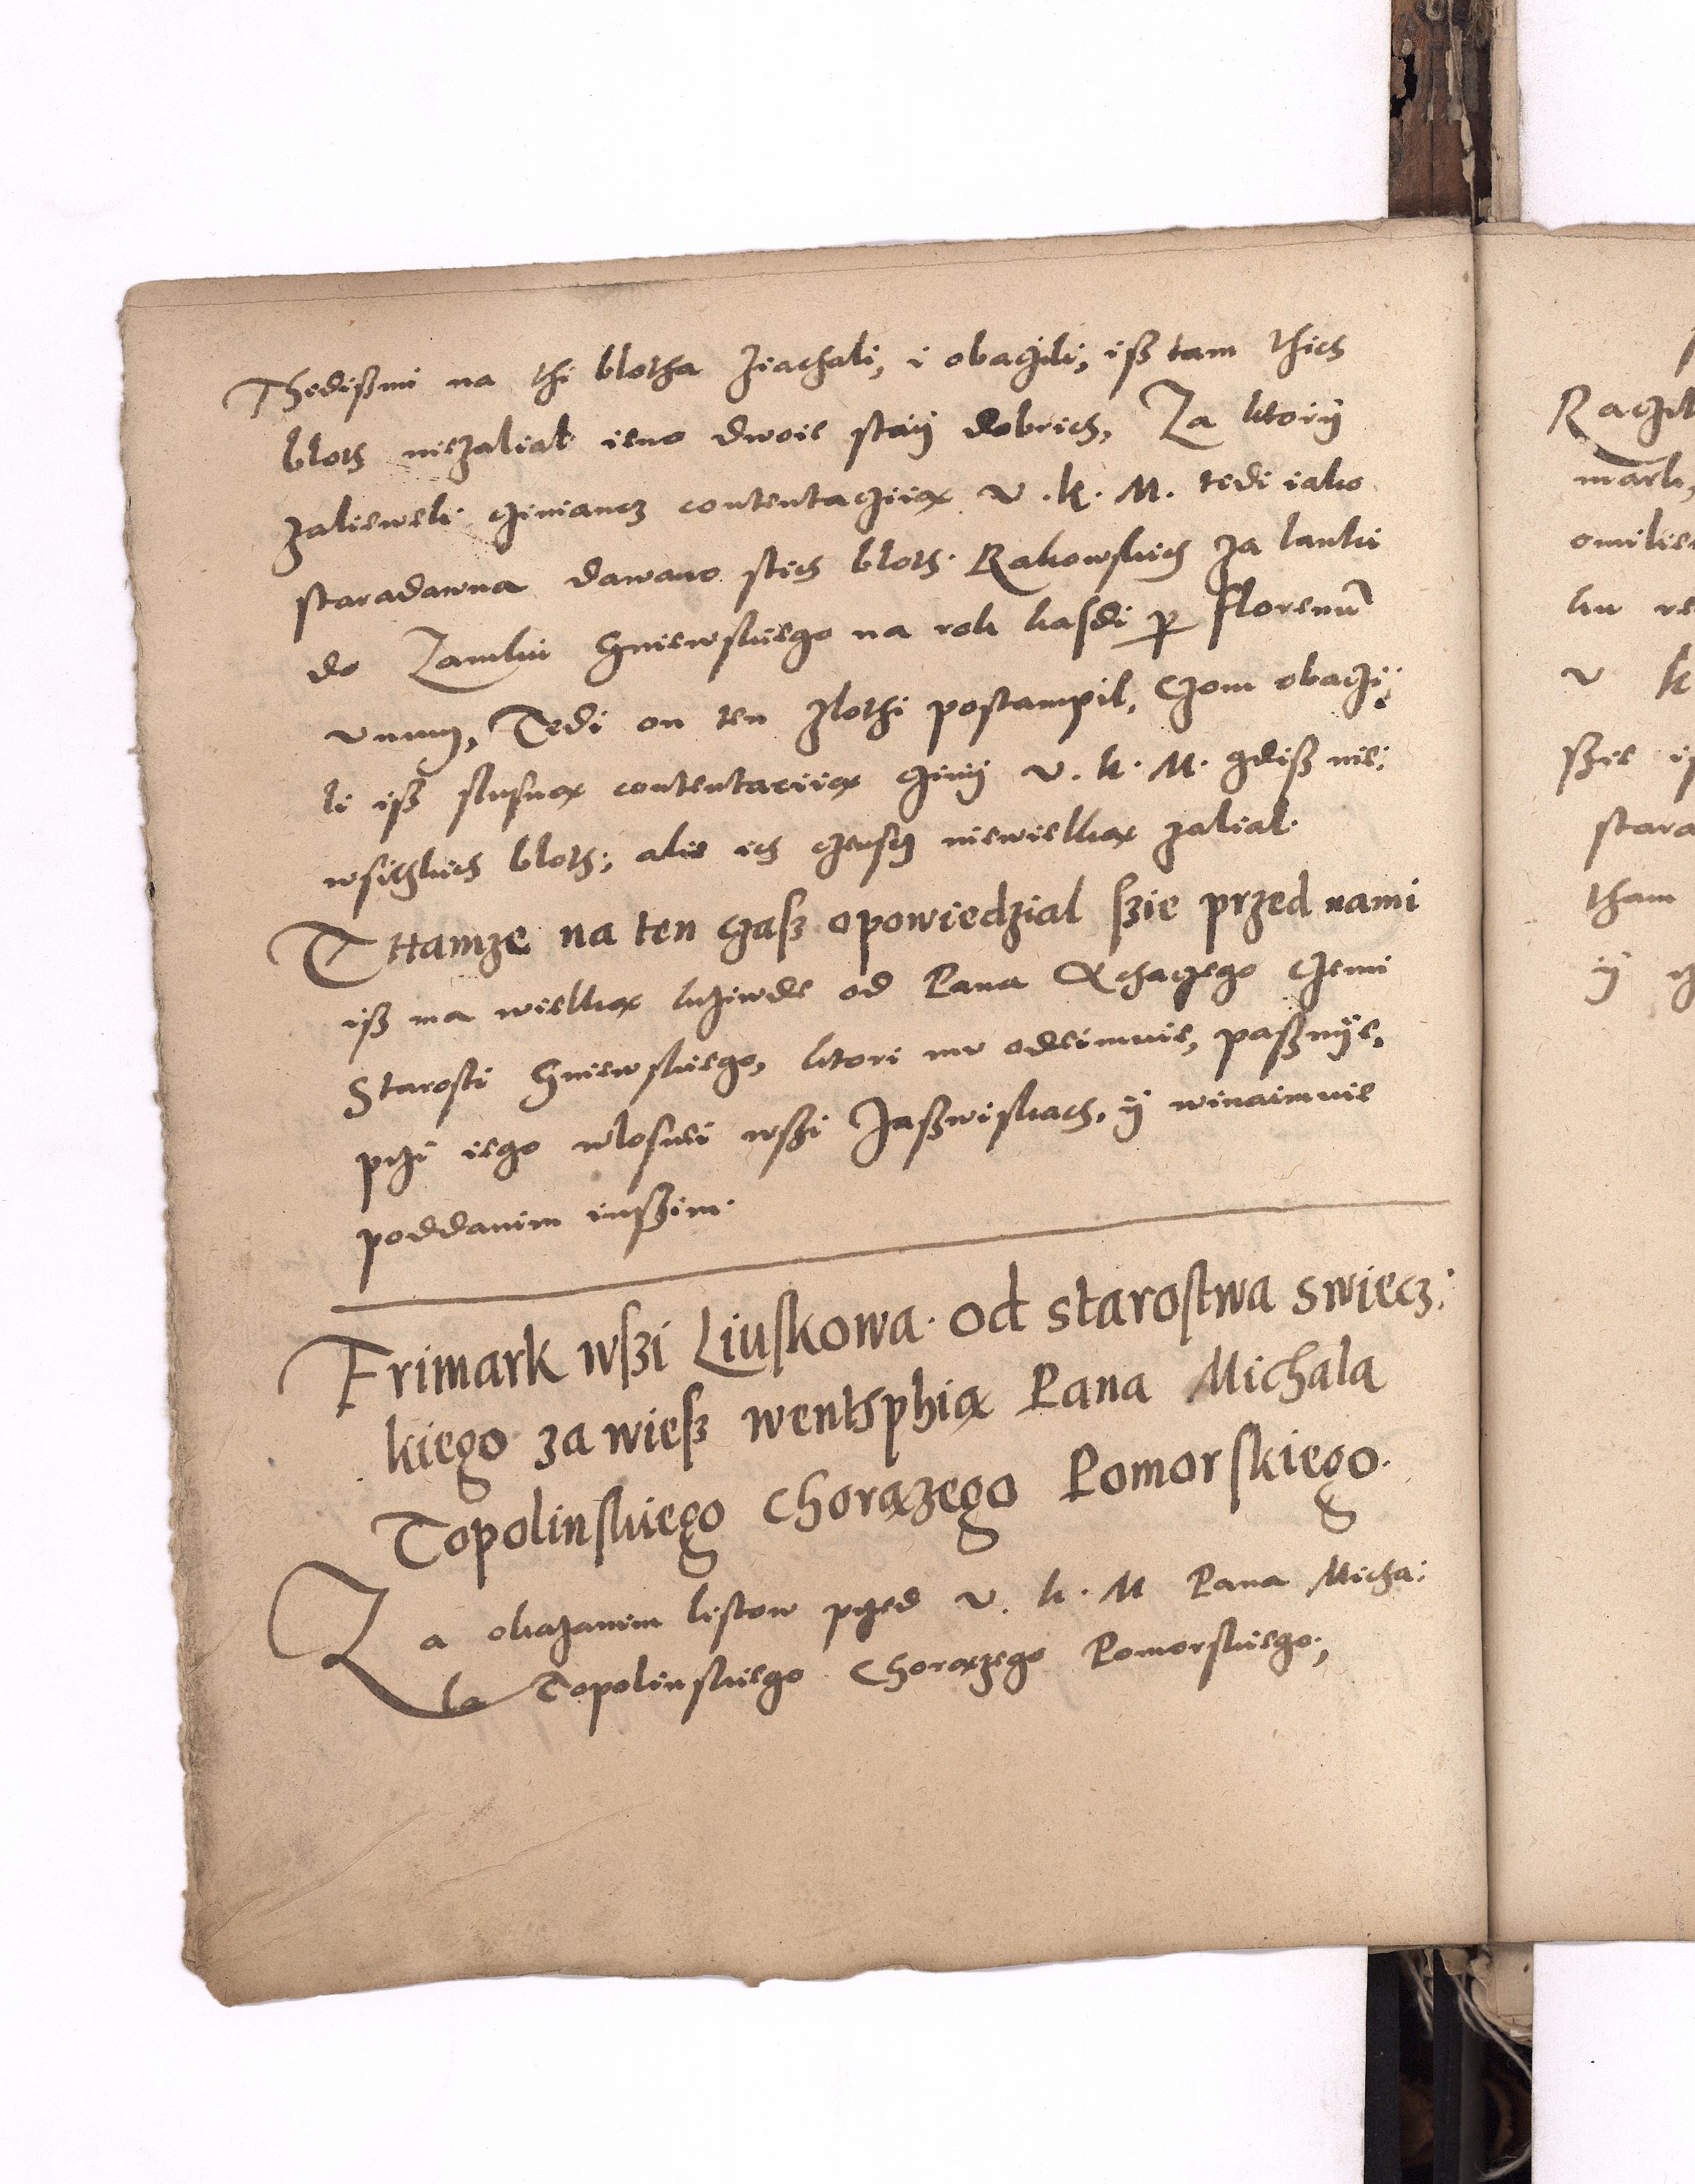 Thedißmi na thi blotha ziachali, i obaczili, iß tam thich
bloth niezalial ieno dwoie staÿ dobrich, Za ktorÿ
zalieweli cziniancz contentacziią v. k. M. tedi iako
staradawna dawano stich bloth Rakowskich za lanki
do Zamku Gniewskiego na rok kasdi per florenũ
vnum, Tedi on ten zlothi postampil, czom obaczi:
li iß slusną contentaciią czinÿ v. k. M. gdiß nie:
wsitzkich bloth, alie ich czenscz niewielką zalial.
Tttamze na ten czasz opowiedzial szie przed nami
iß ma wielką krziwde od Pana Achaczego Czemi
Starosti Gniewskiego, ktori mv odeimuie, paßnÿe,
przi iego wlosnei wßi Jaßwiskach, ÿ winaimuie
poddanim inßim.
Frimark wszi Liuskowa od starostwa swiecz:
kiego za wiesz wentsphią Pana Michala
Topolinskiego Chorązego Pomorskiego.
Za okazanim listow przed v. k. M Pana Micha:
la Topolinskiego Chorązego Pomorskiego,
Raczil
mark,
v k
ßie
stara
tham
ÿ